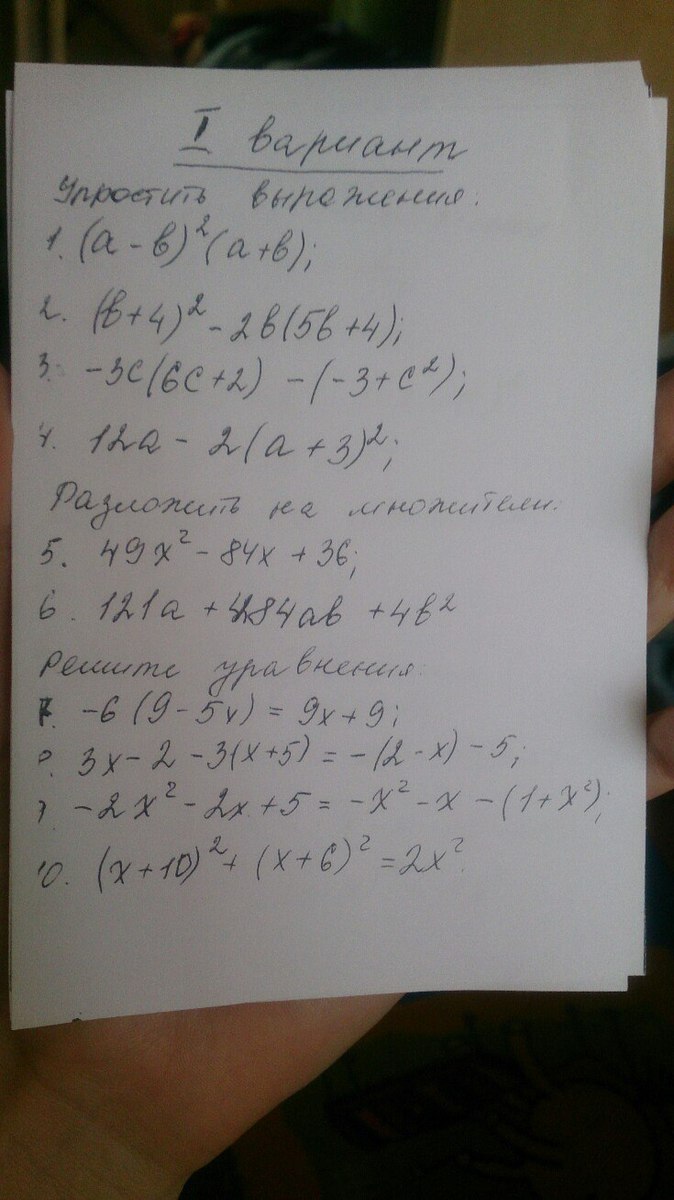 I вариант
Упростить выражения:
1. (a - b)²(a+b);
2. (b+4)² - 2b(5b+4);
3. -3c(6c+2) - (-3+c²);
4. 12a - 2(a+3)²;
Разложить на множители:
5. 49x² - 84x + 36;
6. 121a + 84ab + 4b²
Решите уравнения:
7. -6(9-5x) = 9x+9;
8. 3x-2-3(x+5) = -(2-x)-5;
9. -2x²-2x+5 = -x²-x-(1+x²);
10. (x+10)²+(x+6)²=2x².